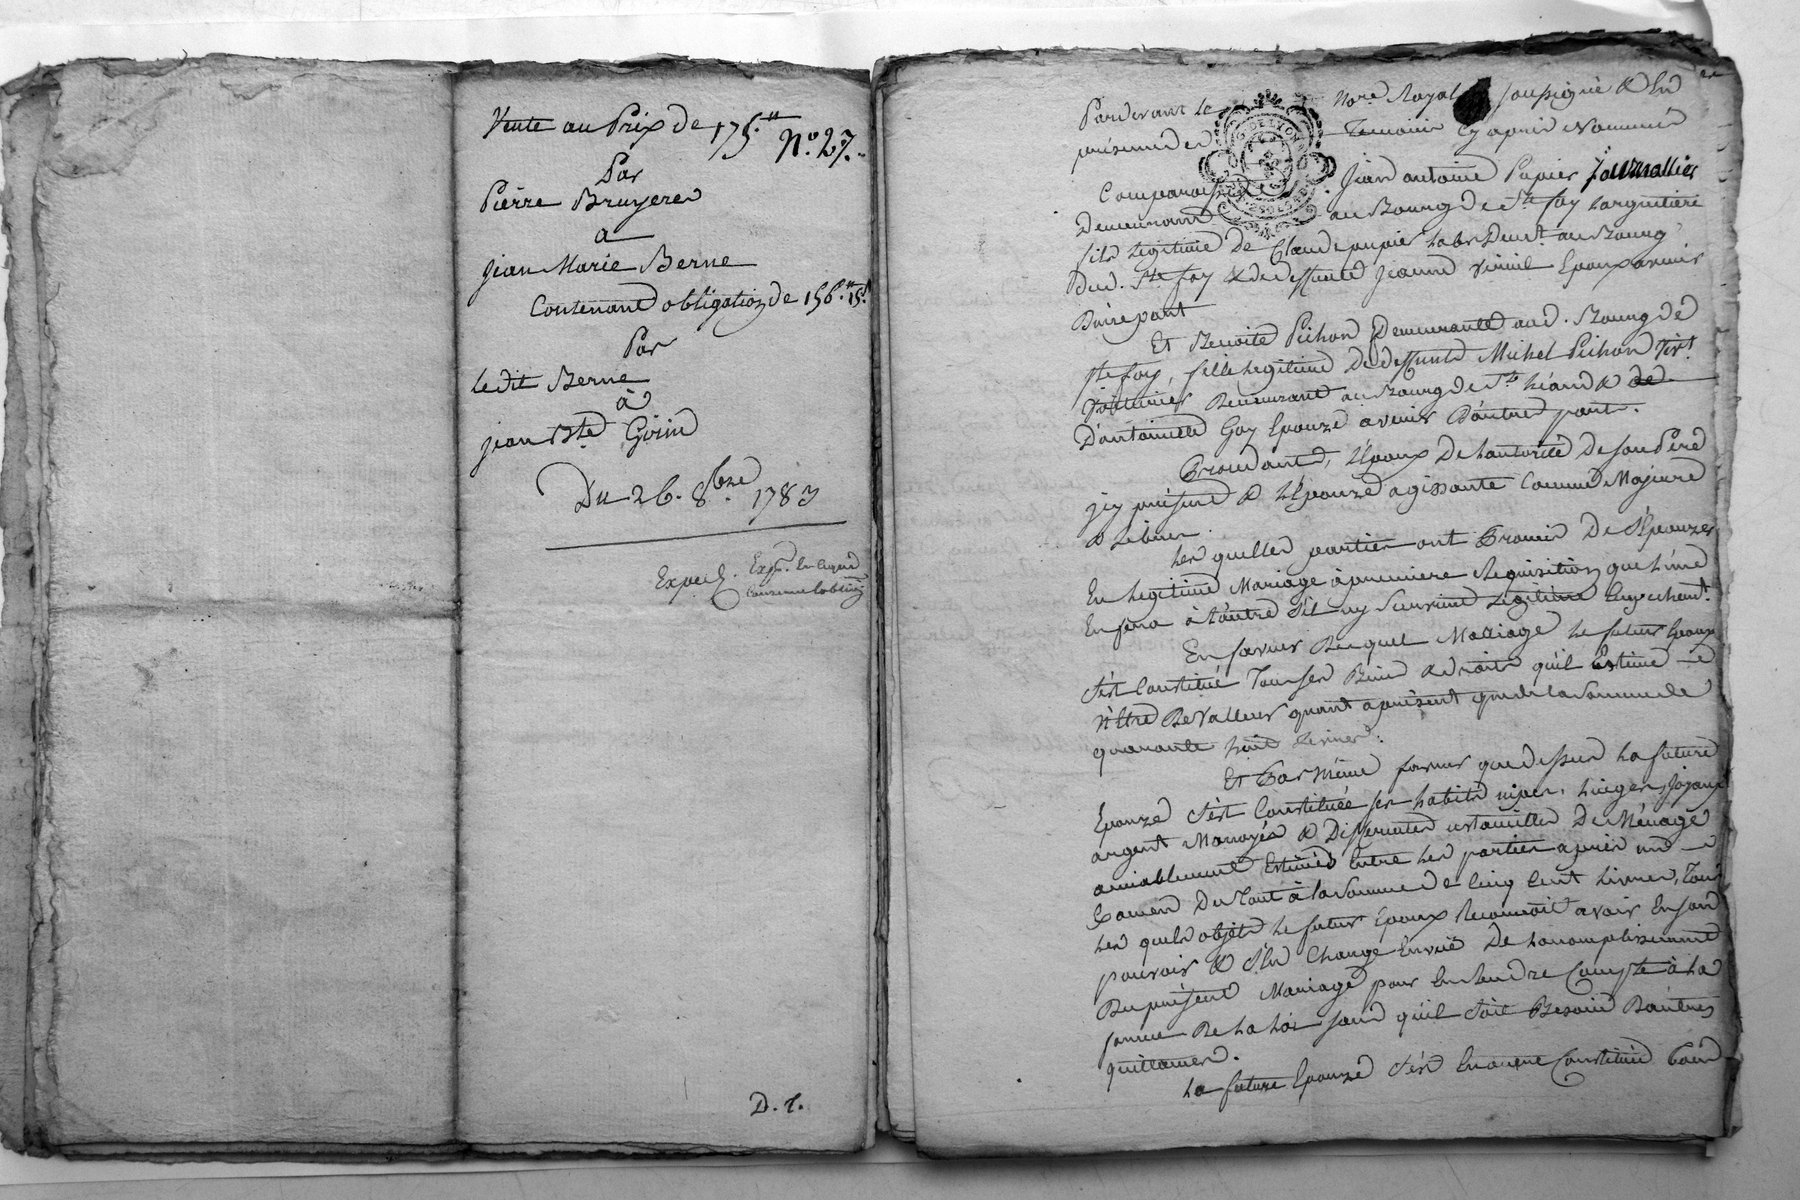 Vente au Prix de 175.tt
No. 27.
Par
Pierre Bruyere
a
jean Marie Berne
Contenant obligation de 156.tt 15.s
Par
ledit Berne
à
jean Bte Goiin
Du 26. 8bre 1783
Exped.
D. t.
Pardevant le Nore. Royal soussigné & En
présence des Temoins Cy après Nommés
G. DE LYON
Comparaissent Jean antoine Pupier Journallier
Demeurant au Bourg de Ste foy Largentiere
fils Légitime de Claude pupier Labr Demt. au Bourg
Dud. Ste foy & de deffunte Jeanne Epoux avenir
D'une part
Et Benoite Pichon Demeurante aud. Bourg de
Ste foy, fille Legitime De deffunt Michel Pichon
Demeurant au Bourg de St. & de
D'antoinette Guy Epouze avenir D'autre part.
Procedants, L'Epoux De L'autorité De son Pere
jcy présent & L'Epouze agissante Comme Majeure
& Libre.
Les quelles parties ont Promis De S'Epouzer
En Legitime Mariage à premiere Requisition que L'une
En fera à L'autre S'il ny Survient Legitime Empechemt.
En faveur Du quel Mariage Le futur Epoux
S'est Constitué Tous ses Biens & droits qu'il Estime
N'Etre De Valleur quant a present que de la Somme de
quarante huit Livres.
Et Par Même faveur que dessus La future
Epouze S'est Constituée ses habits nipes, Linges, Joyaux
argent Monoyés & Differentes ustancilles De Ménage
amiablement Estimés Entre Les parties après un
Examen Du Tout à la Somme de Cinq Cent Livres, Tous
Les quels objets Le futur Epoux Reconnoit avoir En son
pouvoir & S'En Charge En vüe De L'accomplissement
Du présent Mariage pour En Rendre Compte à La
forme De La Loi sans qu'il Soit Besoin D'autres
quittances.
La future Epouze S'est Encore Constitué Pour